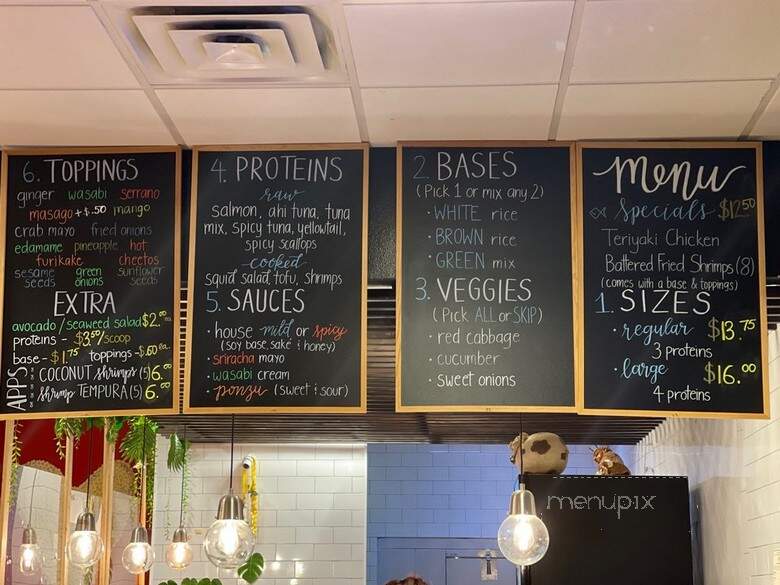 6. TOPPINGS
ginger wasabi serrano
masago +$.50 mango
crab mayo fried onions
edamame pineapple hot
furikake cheetos
sesame green sunflower
seeds onions seeds
EXTRA
avocado/seaweed salad $2.00 ea.
proteins - $3.50/scoop
base - $1.75 toppings - $.60 ea.
APPS
COCONUT shrimps (5) 6.00
shrimp TEMPURA (5) 6.00
4. PROTEINS
raw
salmon, ahi tuna, tuna
mix, spicy tuna, yellowtail,
spicy scallops
cooked
squid salad, tofu, shrimps
5. SAUCES
• house - mild or spicy
(soy base, sake & honey)
• sriracha mayo
• wasabi cream
• ponzu (sweet & sour)
2. BASES
(Pick 1 or mix any 2)
• WHITE rice
• BROWN rice
• GREEN mix
3. VEGGIES
(Pick ALL or SKIP)
• red cabbage
• cucumber
• sweet onions
Menu
Specials $12.50
Teriyaki Chicken
Battered Fried Shrimps (8)
(comes with a base & toppings)
1. SIZES
• regular $13.75
3 proteins
• large $16.00
4 proteins
menupix